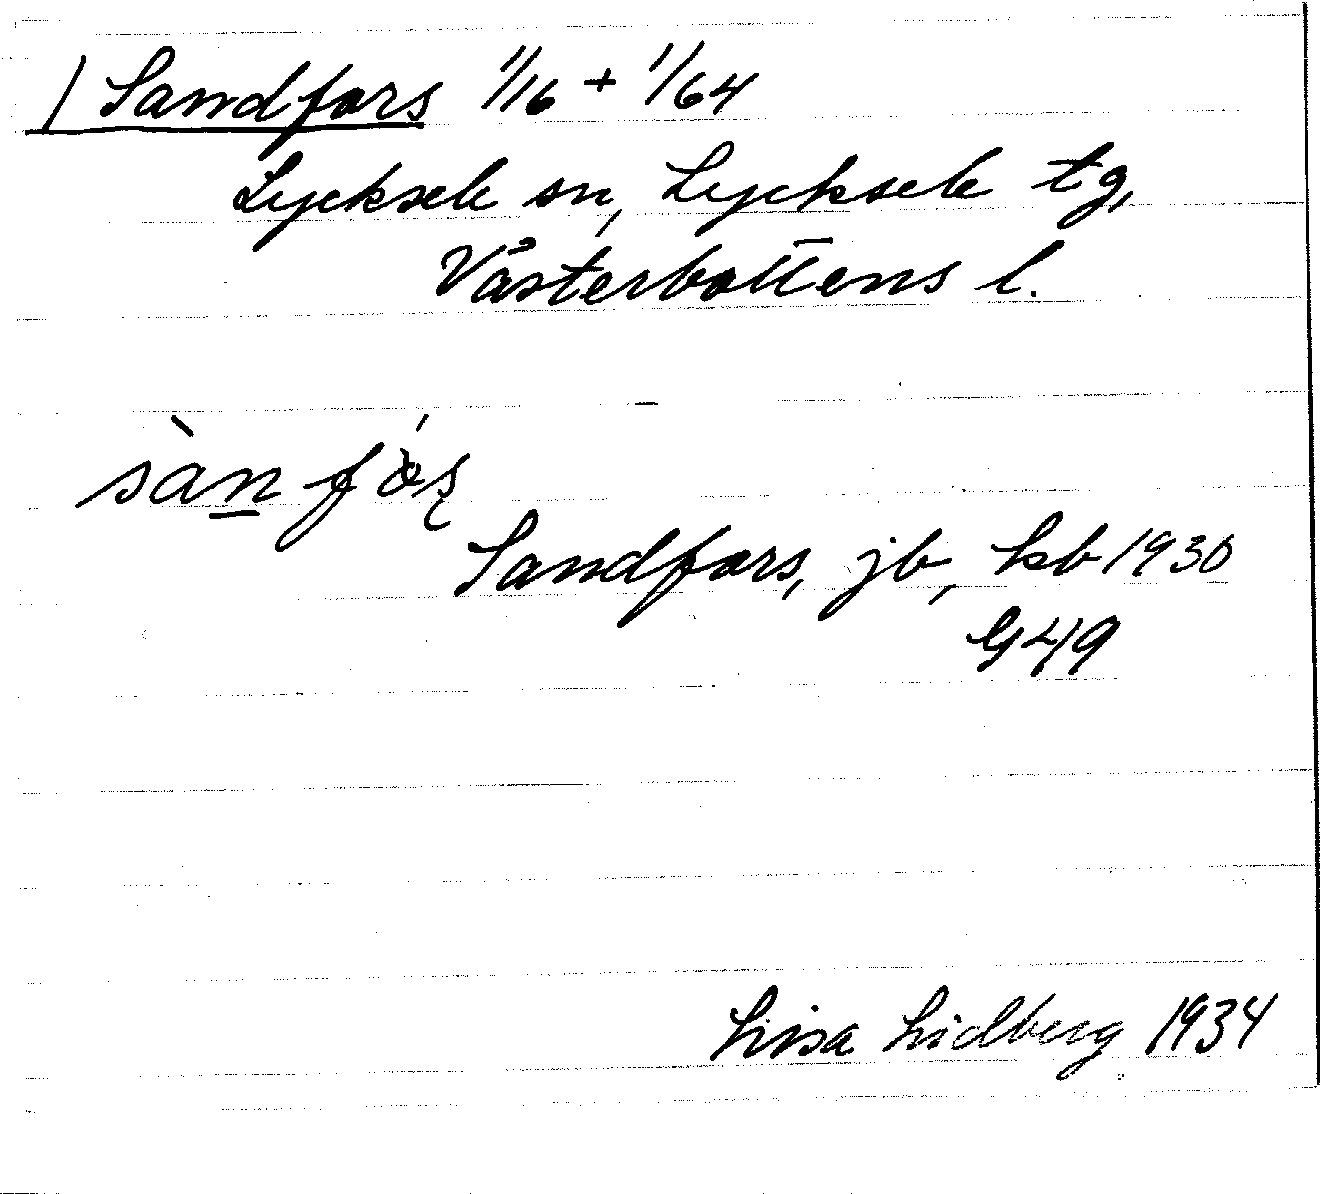 / Sandfors 1/16 + 1/64
Lycksele sn, Lycksele tg,
Västerbottens l.
Sandfors, jb, kb 1930
G 49
Lisa Lidberg 1934